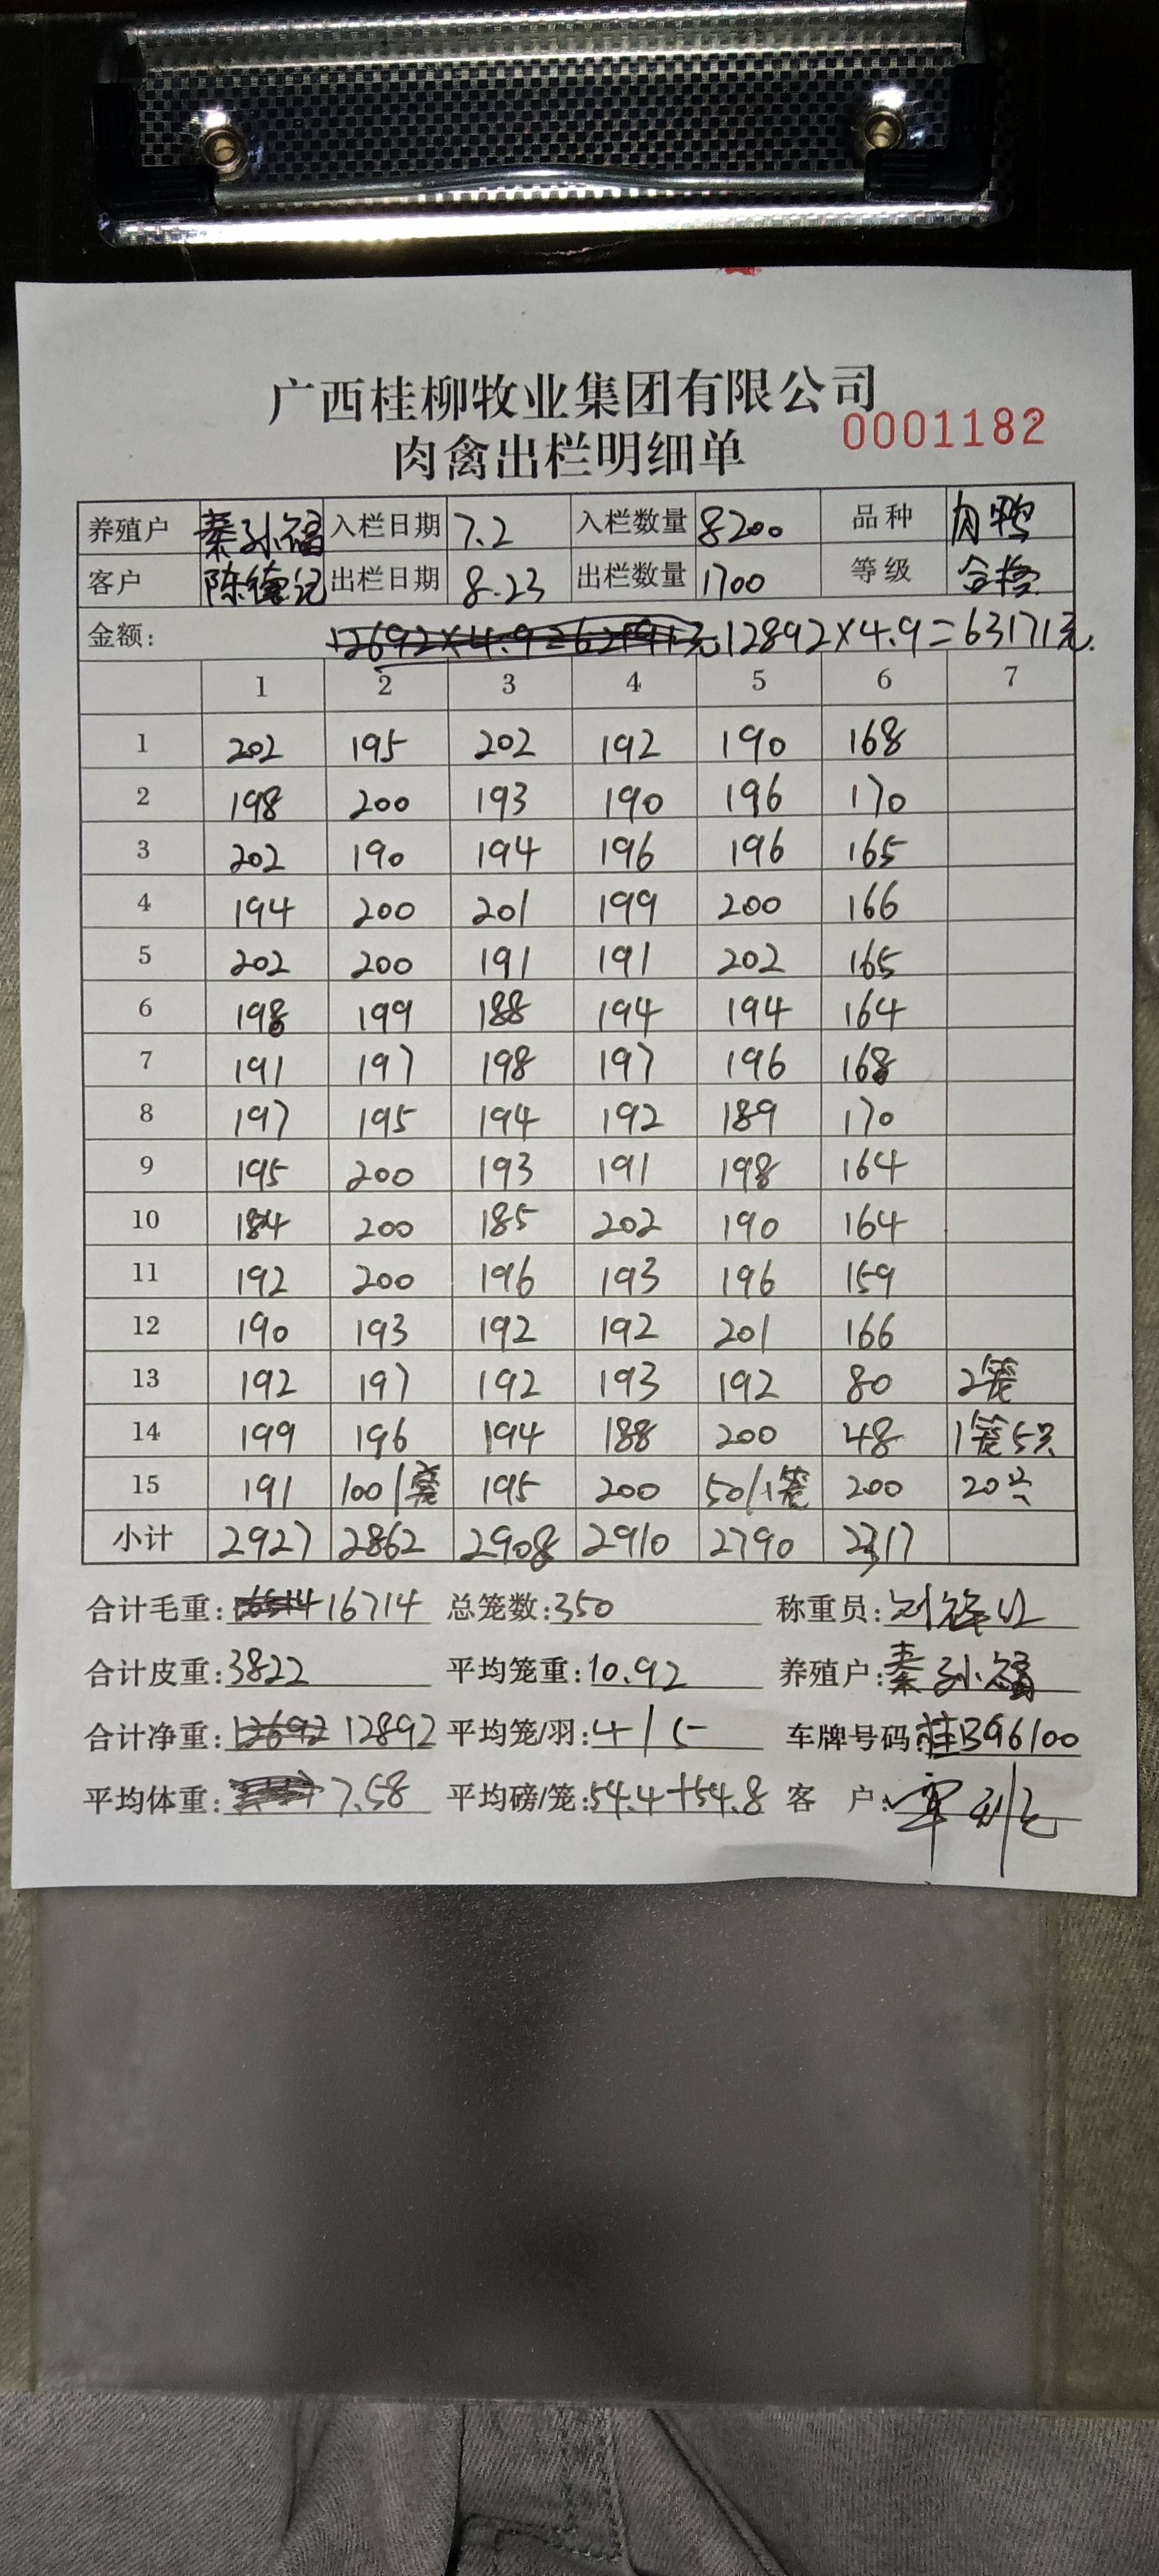 广西桂柳牧业集团有限公司
0001182
肉禽出栏明细单
养殖户 秦孙福 入栏日期 7.2 入栏数量 8200 品种 肉鸭
客户 陈德记 出栏日期 8.23 出栏数量 1700 等级 合格
金额: 12692×4.9=62191元 12892×4.9=63171元.
1 2 3 4 5 6 7
1 202 195 202 192 190 168
2 198 200 193 190 196 170
3 202 190 194 196 196 165
4 194 200 201 199 200 166
5 202 200 191 191 202 165
6 198 199 188 194 194 164
7 191 197 198 197 196 168
8 197 195 194 192 189 170
9 195 200 193 191 198 164
10 184 200 185 202 190 164
11 192 200 196 193 196 159
12 190 193 192 192 201 166
13 192 197 192 193 192 80 2笼
14 199 196 194 188 200 48 1笼5只
15 191 100/笼 195 200 50/1笼 200 20只
小计 2927 2862 2908 2910 2790 2317
合计毛重: 16514 16714 总笼数: 350 称重员:
合计皮重: 3822 平均笼重: 10.92 养殖户: 秦孙福
合计净重: 12692 12892 平均笼/羽: 4/5 车牌号码: 桂B96100
平均体重: 7.58 平均磅/笼: 54.4+54.8 客 户: